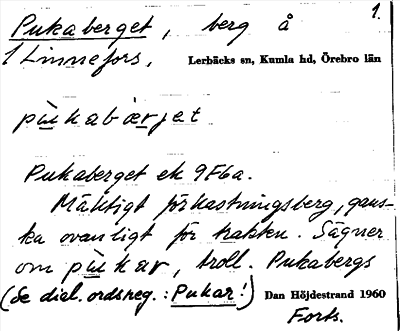 Pukaberget, berg å 1.
1 Linnefors, Lerbäcks sn, Kumla hd, Örebro län
pùkabærjet
Pukaberget ek 9F6a.
Mäktigt förkastningsberg, gans-
ka ovanligt för trakten. Sägner
om pùkar, troll. Pukabergs
(Se dial. ordsreg.: Pukar!) Dan Höjdestrand 1960
Forts.